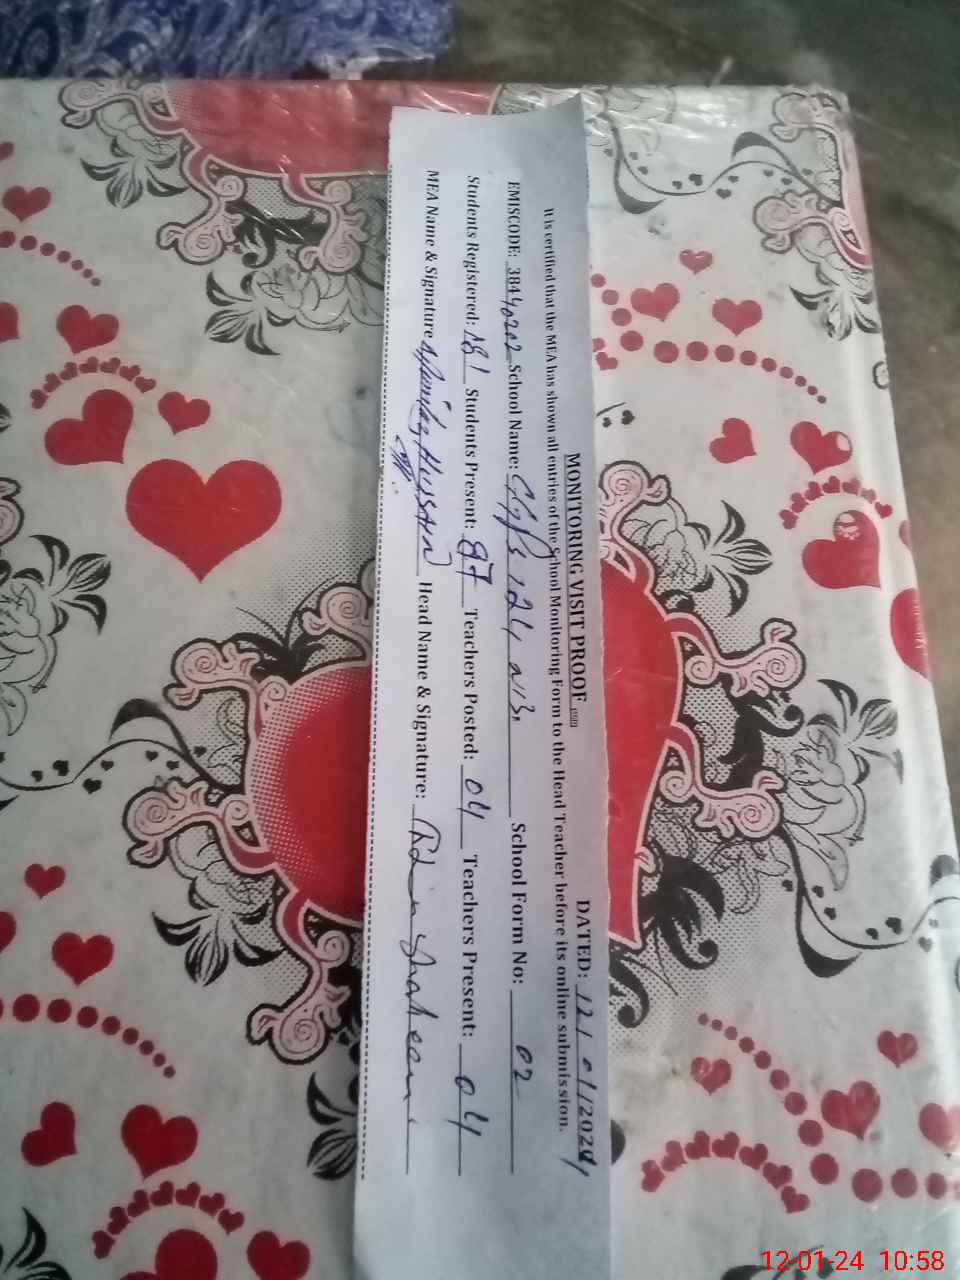 MONITORING VISIT PROOF DATED: 12/01/2024
It is certified that the MEA has shown all entries of the School Monitoring Form to the Head Teacher before its online submission.
EMISCODE: 38440202 School Name: GGPS 124 NB, School Form No: 02
Students Registered: Students Present: 87 Teachers Posted: 04 Teachers Present: 04
MEA Name & Signature Hussain Head Name & Signature:
12-01-24 10:58